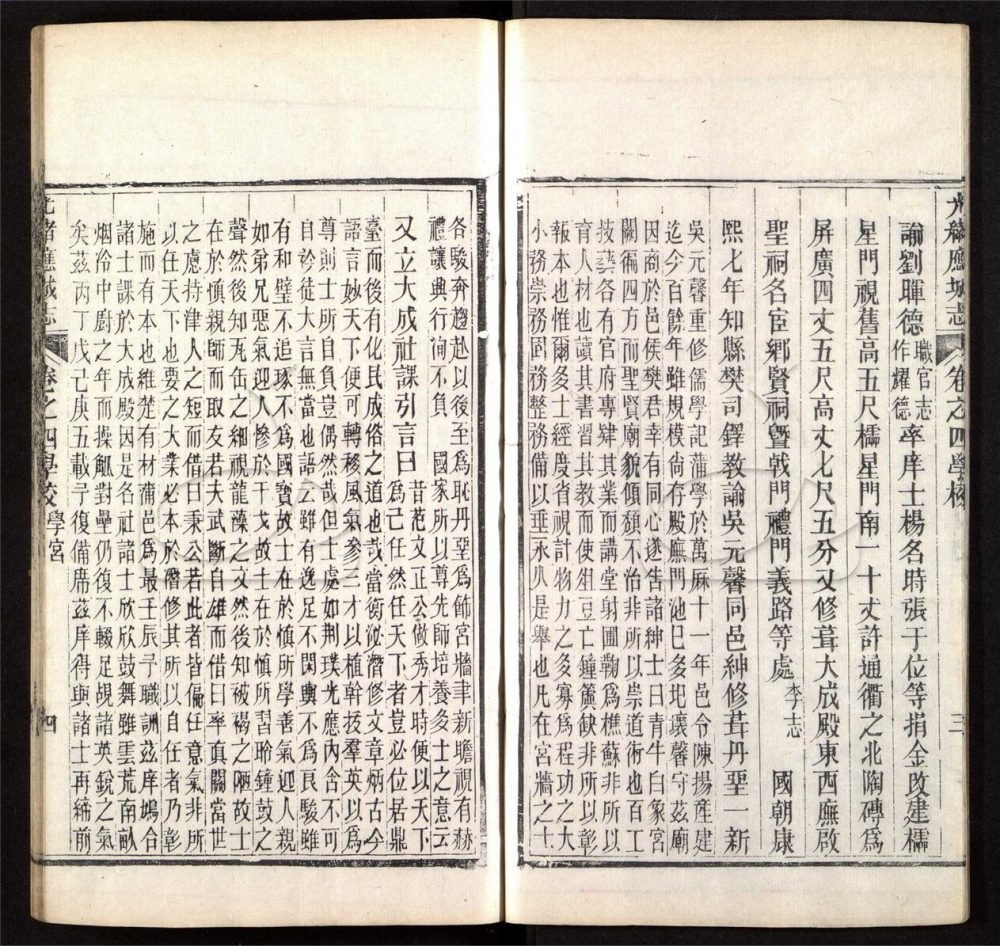 光緒應城志
卷之四學校
三
諭劉暉德職官志作耀德率庠士楊名時張于位等捐金改建櫺
星門視舊高五尺櫺星門南一十丈許通衢之北陶磚爲
屏廣四丈五尺高丈七尺五分又修葺大成殿東西廡啟
聖祠名宦鄉賢祠暨戟門禮門義路等處李志 國朝康
熙七年知縣樊司鐸教諭吳元馨同邑紳修葺丹堊一新
吳元馨重修儒學記蒲學於萬厤十一年邑令陳揚產建
迄今百餘年雖規模尙存殿廡門池已多圮壞馨守茲廟
因商於邑侯樊君幸有同心遂告諸紳士曰靑牛白象宮
闕徧四方而聖賢廟貌傾頽不怡非所以崇道術也百工
技藝各有官府專肄其業而講堂射圃鞠爲樵蘇非所以
育人材也讀其書習其教而使俎豆亡鐘簴缺非所以彰
報本也惟爾多士經度省視計物力之多寡爲程功之大
小務崇務固務整務備以垂永久是舉也凡在宮牆之士
各駿奔趨赴以後至爲恥丹堊爲飾宮牆聿新瞻視有赫
禮讓典行洵不負 國家所以尊先師培養多士之意云
又立大成社課引言曰昔范文正公做秀才時便以天下爲己任然任天下者豈必位居鼎
臺而後有化民成俗之道也哉當衡泌潛修文章炳古今
語言妙天下便可轉移風氣參三才以植幹抜羣英以爲
尊則士所自負豈偶然哉但士處如荆璞光應內含不可
自矜徒大言無當也語云雖有逸足不閑輿不爲良駿雖
有和璧不追琢不爲國寶故士在於愼所學善氣迎人親
如弟兄惡氣迎人慘於干戈故士在於愼所習聆鐘鼓之
聲然後知瓦缶之細視龍藻之文然後知被褐之陋故士
在於愼親師而取友若夫武斷自雄而借曰率眞關當世
之慮持津人之短而借曰秉公若此者皆偏任意氣非所
以任天下也要之大業必本於潛修其所以自任者乃彰
施而有本也維楚有材蒲邑爲最壬辰予職訓茲庠鳩合
諸士課於大成殿因是名社諸士欣欣鼓舞雖雲荒南畝
烟伶中廚之年而操觚對壘仍復不輟足覘諸英銳之氣
矣茲丙丁戊己庚五載予復備席茲庠得與諸士再締前
光緒應城志
卷之四學校 學宮
四